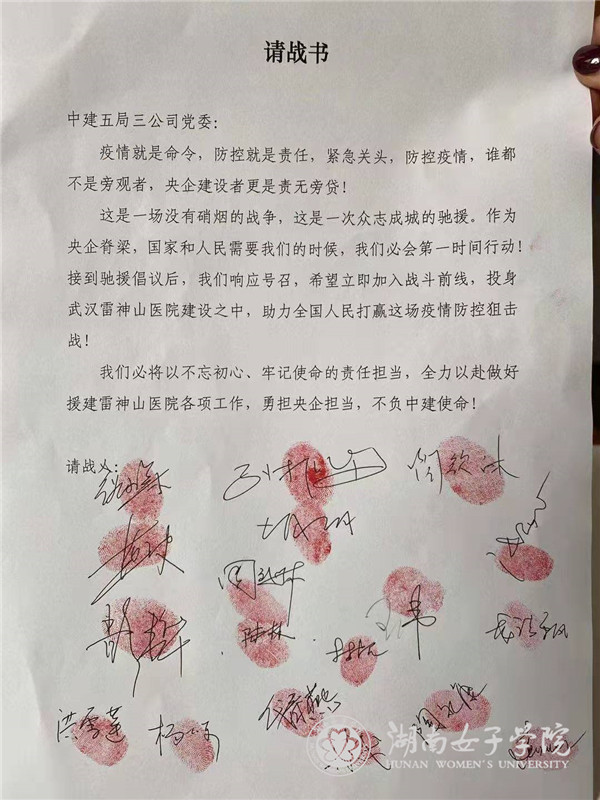 请战书
中建五局三公司党委：
疫情就是命令，防控就是责任，紧急关头，防控疫情，谁都
不是旁观者，央企建设者更是责无旁贷！
这是一场没有硝烟的战争，这是一次众志成城的驰援。作为
央企脊梁，国家和人民需要我们的时候，我们必会第一时间行动！
接到驰援倡议后，我们响应号召，希望立即加入战斗前线，投身
武汉雷神山医院建设之中，助力全国人民打赢这场疫情防控狙击
战！
我们必将以不忘初心、牢记使命的责任担当，全力以赴做好
援建雷神山医院各项工作，勇担央企担当，不负中建使命！
请战人：
洪雪莲
湖南女子学院
HUNAN WOMEN'S UNIVERSITY